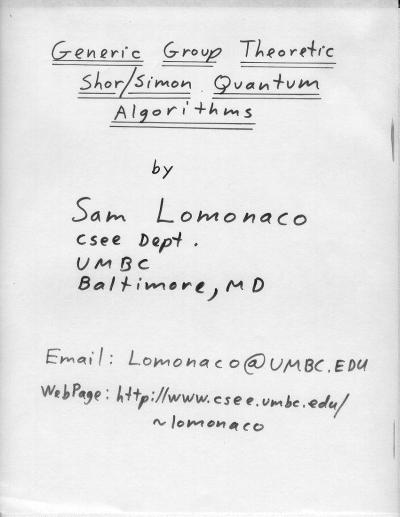 Generic Group Theoretic
Shor/Simon Quantum
Algorithms
by
Sam Lomonaco
CSEE Dept.
UMBC
Baltimore, MD
Email: Lomonaco@UMBC.EDU
WebPage: http://www.csee.umbc.edu/
~lomonaco